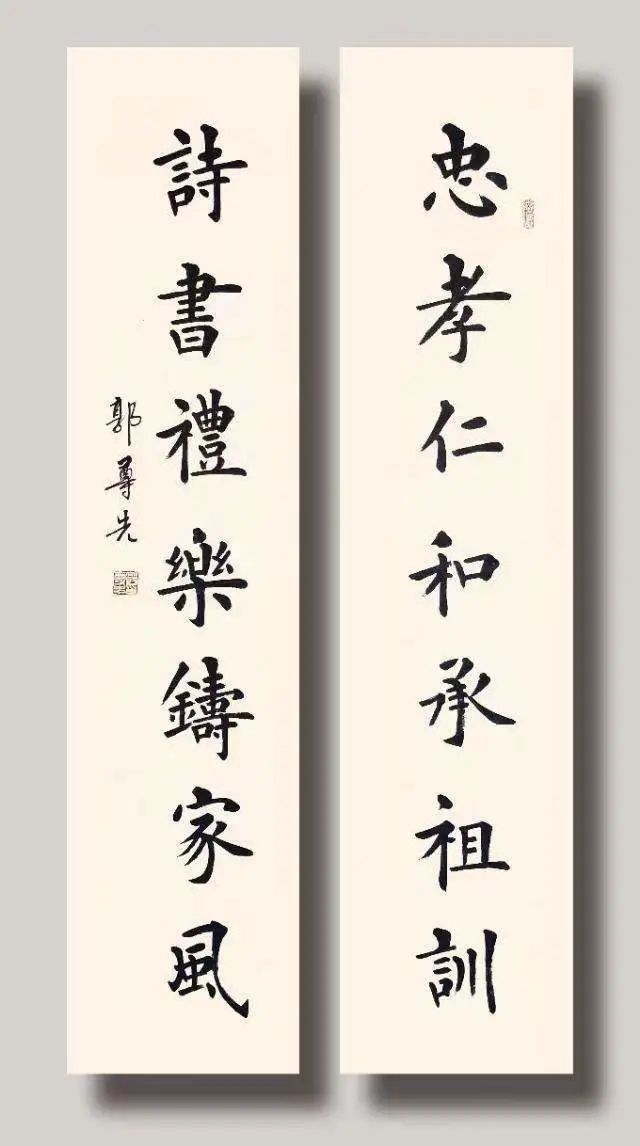 忠孝仁和承祖訓
詩書禮樂鑄家風
郭尊先